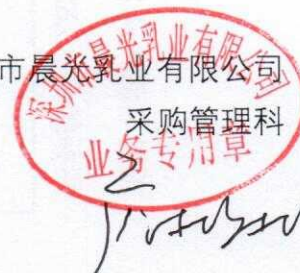 市晨光乳业有限公司
采购管理科
深圳市晨光乳业有限公司
业务专用章